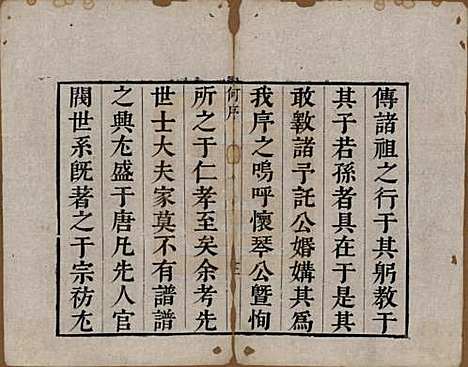 傳諸祖之行于其躬教于
其子若孫者具在于是其
敢斁諸予託公婚媾其為
我序之嗚呼懷琴公暨恂
何序
所之于仁孝至矣余考先
世士大夫家莫不有譜譜
之興尤盛于唐凡先人官
閥世系既著之于宗祊尤